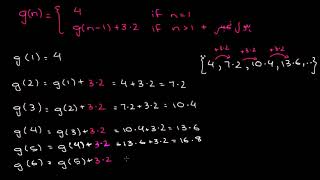 g(n) = { 4 if n=1
g(n-1)+3·2 if n>1
+3·2 +3·2 +3·2
{4, 7·2, 10·4, 13·6, ..}
g(1) = 4
g(2) = g(1) + 3·2 = 4+3·2 = 7·2
g(3) = g(2)+3·2 = 7·2+3·2 = 10·4
g(4) = g(3)+3·2 = 10·4+3·2 = 13·6
g(5) = g(4)+3·2 = 13·6+3·2 = 16·8
g(6) = g(5)+3·2